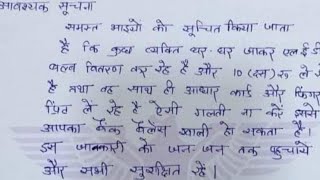 आवश्यक सूचना
समस्त भाइयों को सूचित किया जाता
है कि कुछ व्यक्ति घर-घर जाकर एल ई डी
बल्ब वितरण कर रहे है और 10 (दस) रु ले रहे
है तथा वह साथ ही आधार कार्ड और फिंगर
प्रिंट ले रहे है ऐसी गलती ना करें इससे
आपका बैंक बैलेंस खाली हो सकता है।
इस जानकारी को जन-जन तक पहुचाये
और सभी सुरक्षित रहें।